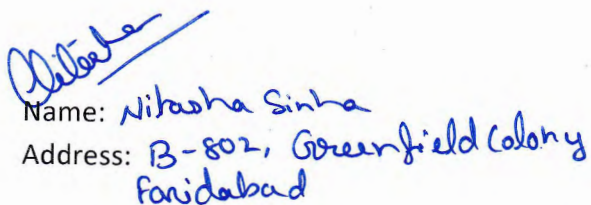 Nitasha
Name: Nitasha Sinha
Address: B-802, Greenfield Colony
Faridabad